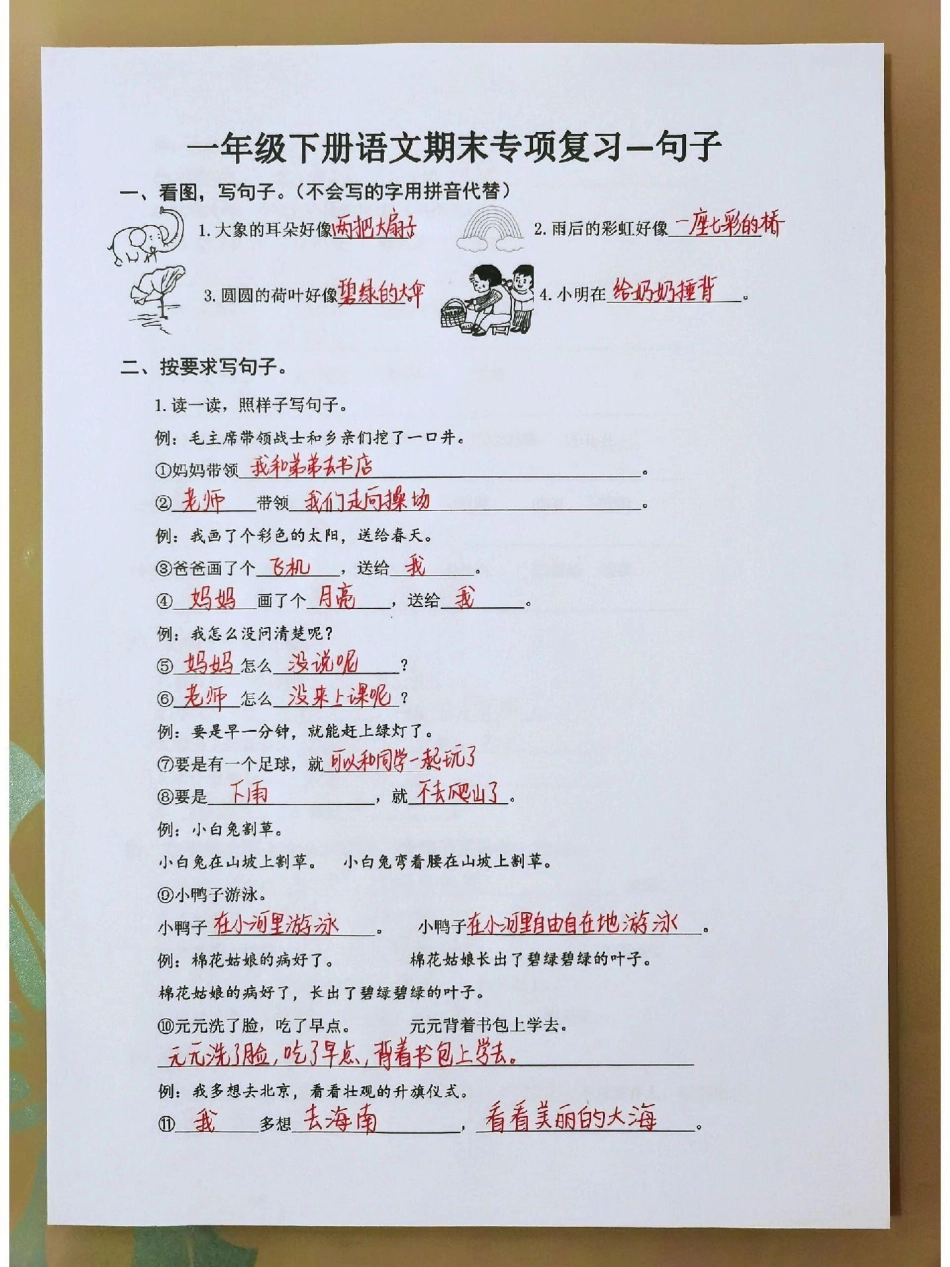 一年级下册语文期末专项复习—句子
一、看图，写句子。（不会写的字用拼音代替）
1.大象的耳朵好像两把大扇子 2.雨后的彩虹好像一座七彩的桥
3.圆圆的荷叶好像碧绿的大伞 4.小明在给奶奶捶背。
二、按要求写句子。
1.读一读，照样子写句子。
例：毛主席带领战士和乡亲们挖了一口井。
①妈妈带领我和弟弟去书店。
②老师带领我们走向操场。
例：我画了个彩色的太阳，送给春天。
③爸爸画了个飞机，送给我。
④妈妈画了个月亮，送给我。
例：我怎么没问清楚呢？
⑤妈妈怎么没说呢？
⑥老师怎么没来上课呢？
例：要是早一分钟，就能赶上绿灯了。
⑦要是有一个足球，就可以和同学一起玩了
⑧要是下雨，就不去爬山了。
例：小白兔割草。
小白兔在山坡上割草。 小白兔弯着腰在山坡上割草。
⑨小鸭子游泳。
小鸭子在小河里游泳。 小鸭子在小河里自由自在地游泳。
例：棉花姑娘的病好了。 棉花姑娘长出了碧绿碧绿的叶子。
棉花姑娘的病好了，长出了碧绿碧绿的叶子。
⑩元元洗了脸，吃了早点。 元元背着书包上学去。
元元洗了脸，吃了早点，背着书包上学去。
例：我多想去北京，看看壮观的升旗仪式。
⑪我多想去海南，看看美丽的大海。